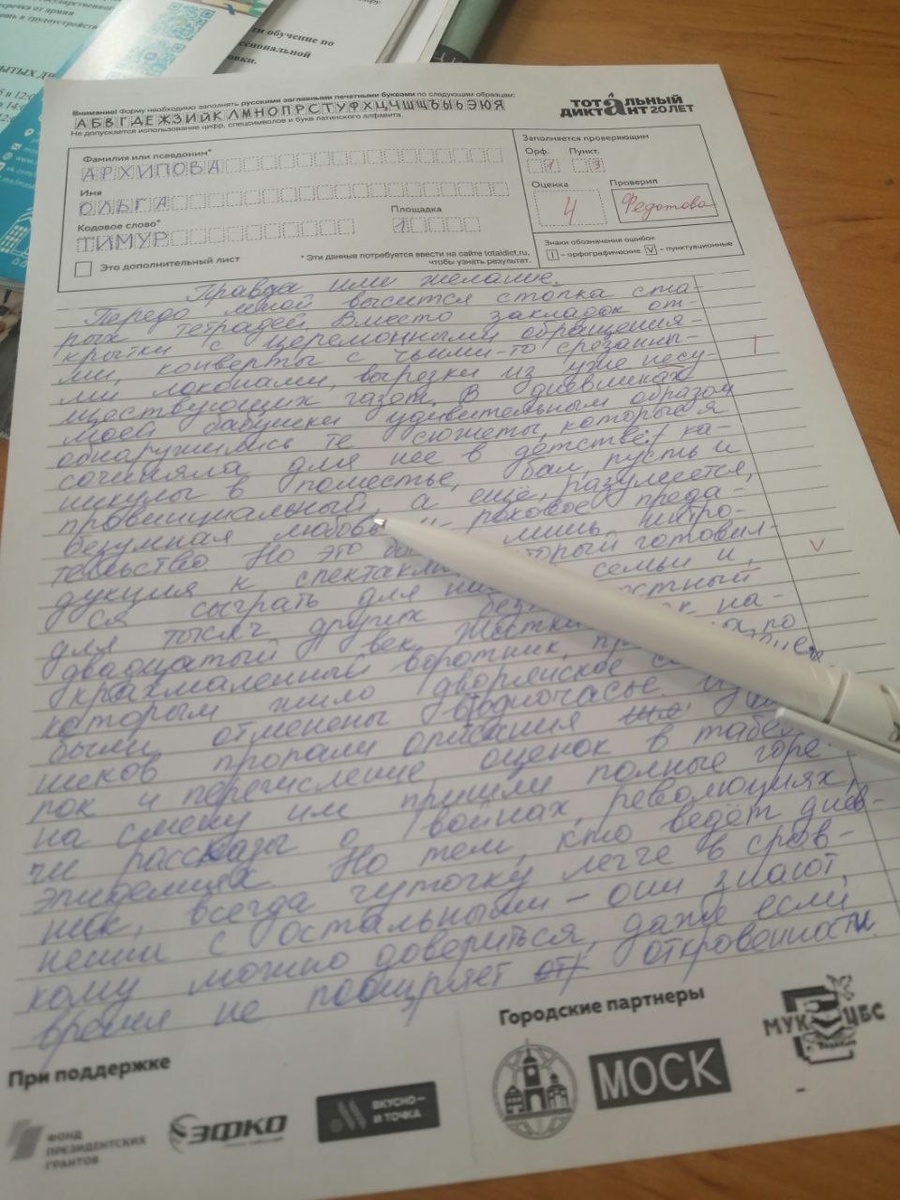 сти обучение по
ессиональной
овки.
Внимание! Форму необходимо заполнять русскими заглавными печатными буквами по следующим образцам:
АБВГДЕЖЗИЙКЛМНОПРСТУФХЦЧШЩЪЫЬЭЮЯ
Не допускается использование цифр, спецсимволов и букв латинского алфавита.
ТОТАЛЬНЫЙ
ДИКТАНТ 20 ЛЕТ
Фамилия или псевдоним*
АРХИПОВА
Имя
ОЛЬГА
Кодовое слово*
ТИМУР
Площадка
1
Это дополнительный лист
* Эти данные потребуется ввести на сайте totaldict.ru,
чтобы узнать результат.
Заполняется проверяющим
Орф. Пункт.
1 3
Оценка Проверил
4 Федотова
Знаки обозначения ошибок
I – орфографические V – пунктуационные
Правда или желание.
Передо мной высится стопка ста-
рых тетрадей. Вместо закладок от-
крытки с церемонными обращения-
ми, конверты с чьими-то срезанны-
ми локонами, вырезки из уже несу-
ществующих газет. В дневниках
моей бабушки удивительным образом
обнаружились те сюжеты, которые я
сочиняла для неё в детстве: ка-
никулы в поместье, бал, пусть и
провинциальный, а ещё, разумеется,
безумная любовь и роковое преда-
тельство. Но это лишь интро-
дукция к который готовил-
ся сыграть для семьи и
для тысяч других
двадцатый век. на-
крахмаленный воротник, по
которым жило дворянское
были отменены в одночасье.
ников пропали описания
рок и перечисление оценок в
на смену им пришли полные горе-
чи рассказы о войнах, революциях,
эпидемиях. Но тем, кто ведёт днев-
ник, всегда чуточку легче в срав-
нении с остальными – они знают,
кому можно довериться, даже если
время не поощряет откровенности.
При поддержке
ФОНД
ПРЕЗИДЕНТСКИХ
ГРАНТОВ
ЭФКО
ВКУСНО—
И ТОЧКА
Городские партнеры
МОСК
МУК ЦБС